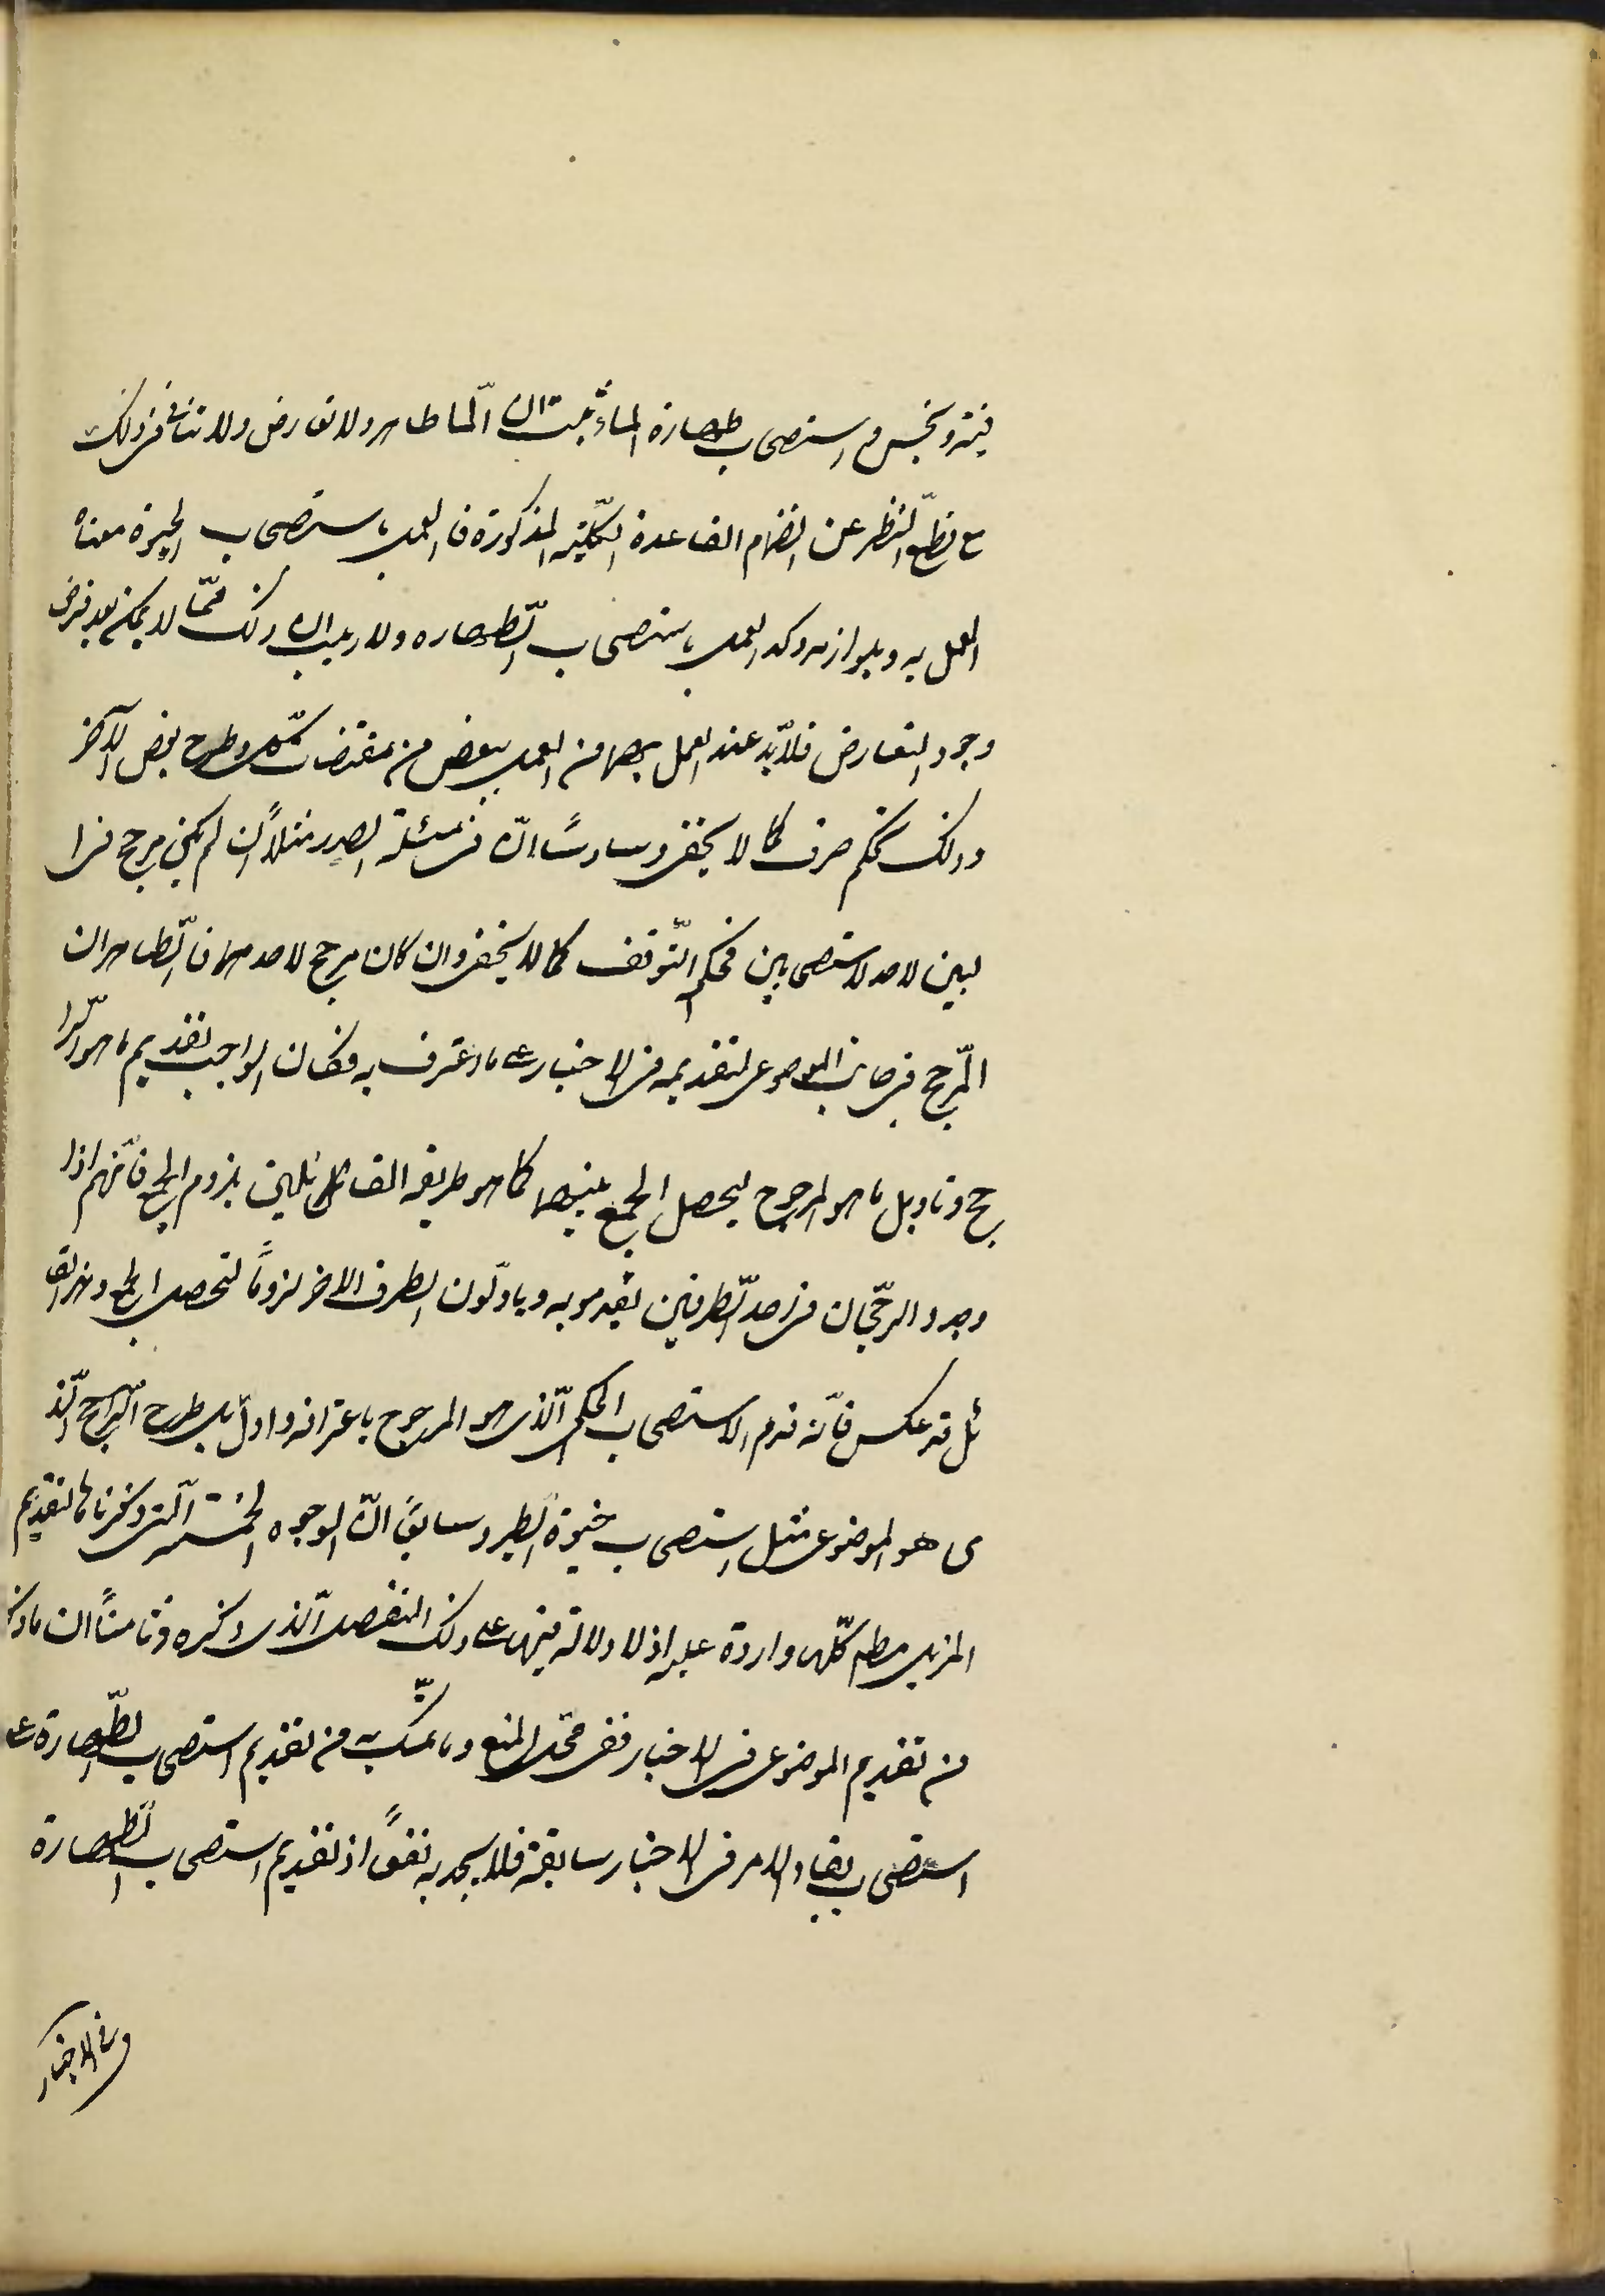 ميتة ونجس و استصحاب طهارة الماء يثبت ان الما طاهر ولا تعارض ولا تنافى فى ذلك
مع قطع النظر عن انضمام القاعدة الكلية المذكورة فالعمل باستصحاب الحيوة معناه
العمل به وبلوازمه وكذ العمل باستصحاب الطهاره ولا ريب ان ذلك ممّا لا يمكن بعد فرض
وجود التعارض فلابد عند العمل بهما من العمل ببعض من مقتضيات كل وطرح بعض الآخر
وذلك تحكم صرف كما لا يخفى وسادسًا انّ فى مسئلة الصدر مثلاً ان لم يكن مرجح فى ا
لبين لاحد الاستصحابين فحكم التوقف كما لا يخفى وان كان مرجح لاحدهما فالظاهر ان
المرجح فى جانب الموضوعى لتقديمه فى الاخبار على ما اعترف به فكان الواجب تقديم ما هو الرا
جح وتاويل ما هو المرجوح ليحصل الجمع بينهما كما هو طريقه القائلين بلزوم الجمع فانّهم اذا
وجدوا الرجحان فى احد الطرفين تقدموا به وياوّلون الطرف الاخر لزومًا لتحصيل الجمع وهذا القا
ئل قد عكس فانّه قدم الاستصحاب الحكمى الذى هو المرجوح باعترافه واوّل بل طرح الراجح الذ
ى هو الموضوعى مثل استصحاب حيوة الطير وسابعًا انّ الوجوه الخمسة التى ذكرناها لتقديم
المزيل مطلقا كلّها واردة عليه اذ لا دلالة فيها على ذلك التفصيل الذى ذكره وثامنًا ان ما ذكر
من تقديم الموضوعى فى الاخبار ففى محل المنع وما تمسّك به من تقديم استصحاب الطهارة على
استصحاب بقاء الامر فى الاخبار سابقة فلا يجد به نفعًا اذ تقديم استصحاب الطهارة
فى الاخبار